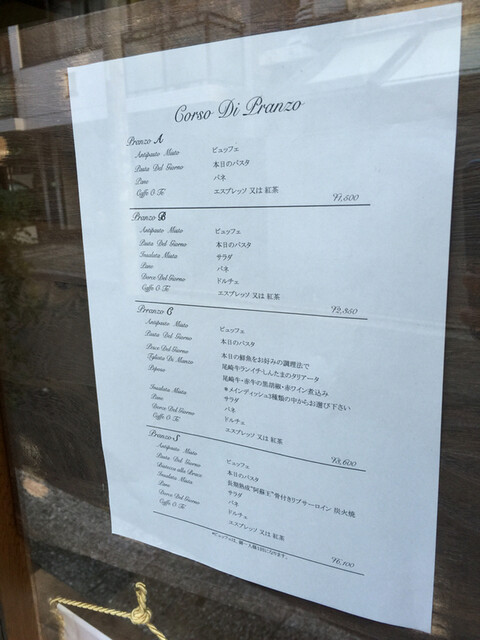 Corso Di Pranzo
Pranzo A
Antipasto Misto ビュッフェ
Pasta Del Giorno 本日のパスタ
Pane パネ
Caffe O Te エスプレッソ 又は 紅茶
¥1,800
Pranzo B
Antipasto Misto ビュッフェ
Pasta Del Giorno 本日のパスタ
Insalata Mista サラダ
Pane パネ
Dorce Del Giorno ドルチェ
Caffe O Te エスプレッソ 又は 紅茶
¥2,350
Pranzo C
Antipasto Misto ビュッフェ
Pasta Del Giorno 本日のパスタ
Pesce Del Giorno 本日の鮮魚をお好みの調理法で
Tgliata Di Manzo 尾崎牛ランイチ・しんたまのタリアータ
Peposo 尾崎牛・赤牛の黒胡椒・赤ワイン煮込み
*メインディッシュ3種類の中からお選び下さい
Insalata Mista サラダ
Pane パネ
Dorce Del Giorno ドルチェ
Caffe O Te エスプレッソ 又は 紅茶
¥3,600
Pranzo S
Antipasto Misto ビュッフェ
Pasta Del Giorno 本日のパスタ
alla Brace 長期熟成"阿蘇王"骨付きリブサーロイン 炭火焼
Insalata Mista サラダ
Pane パネ
Dorce Del Giorno ドルチェ
Caffe O Te エスプレッソ 又は 紅茶
¥6,100
*ビュッフェは、御一人様1回になります。